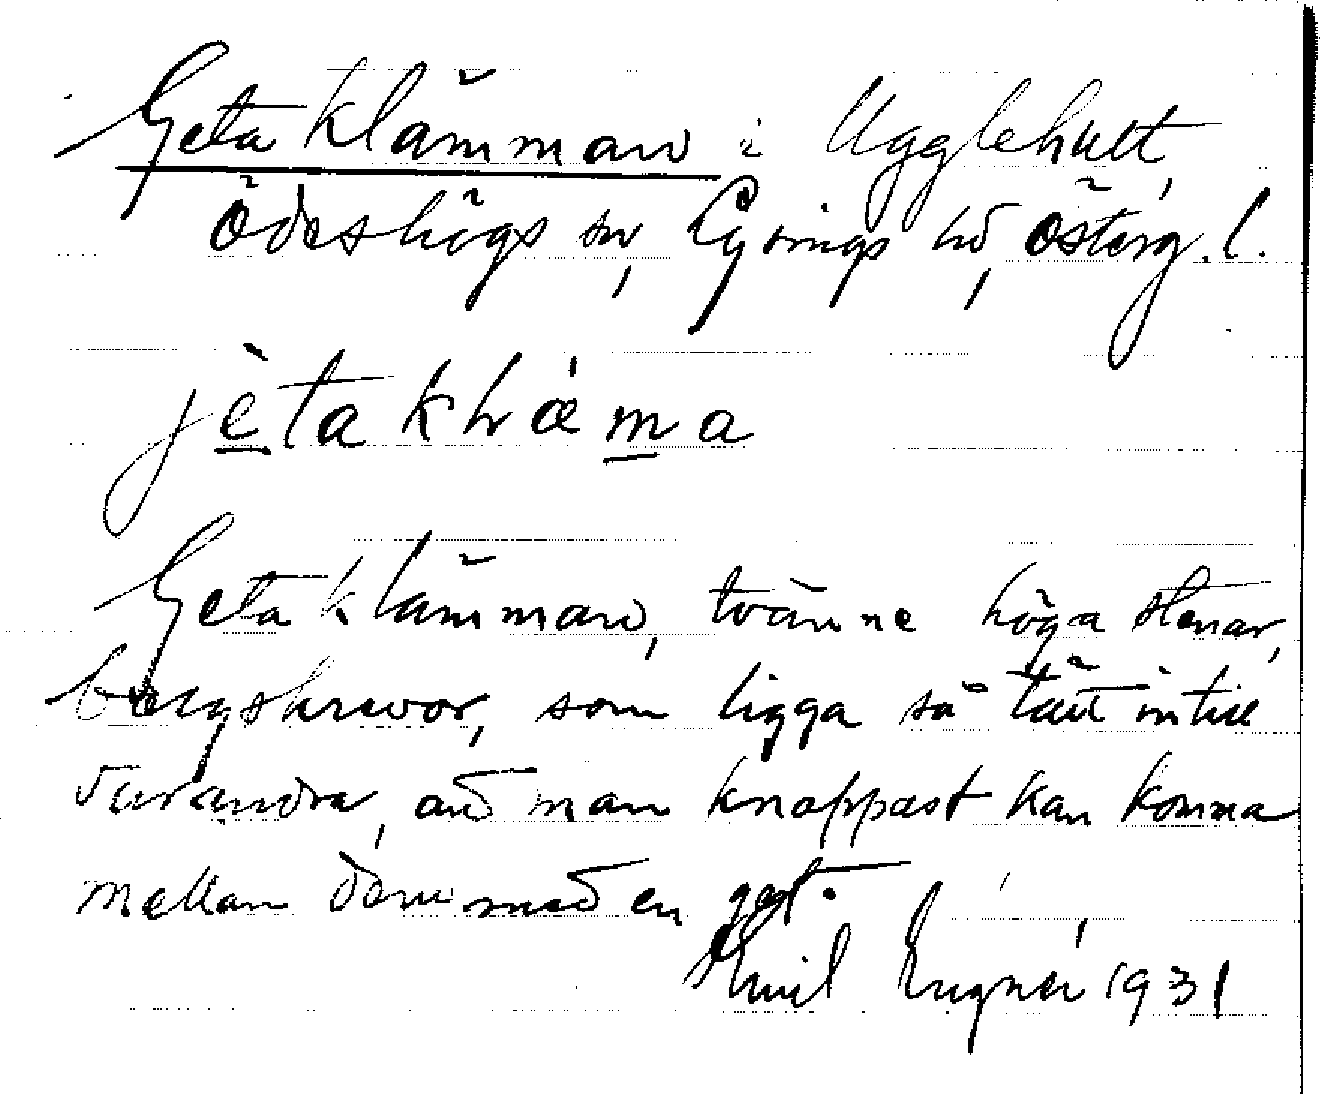 Getaklämman i Ugglehult,
Ödeshögs sn, Lysings hd, Österg. l.
jètaklǽma
Getaklämman, tvänne höga stenar,
bergskrevor, som ligga så tätt intill
varandra, att man knappast kan komma
mellan dem med en get.
Emil 1931